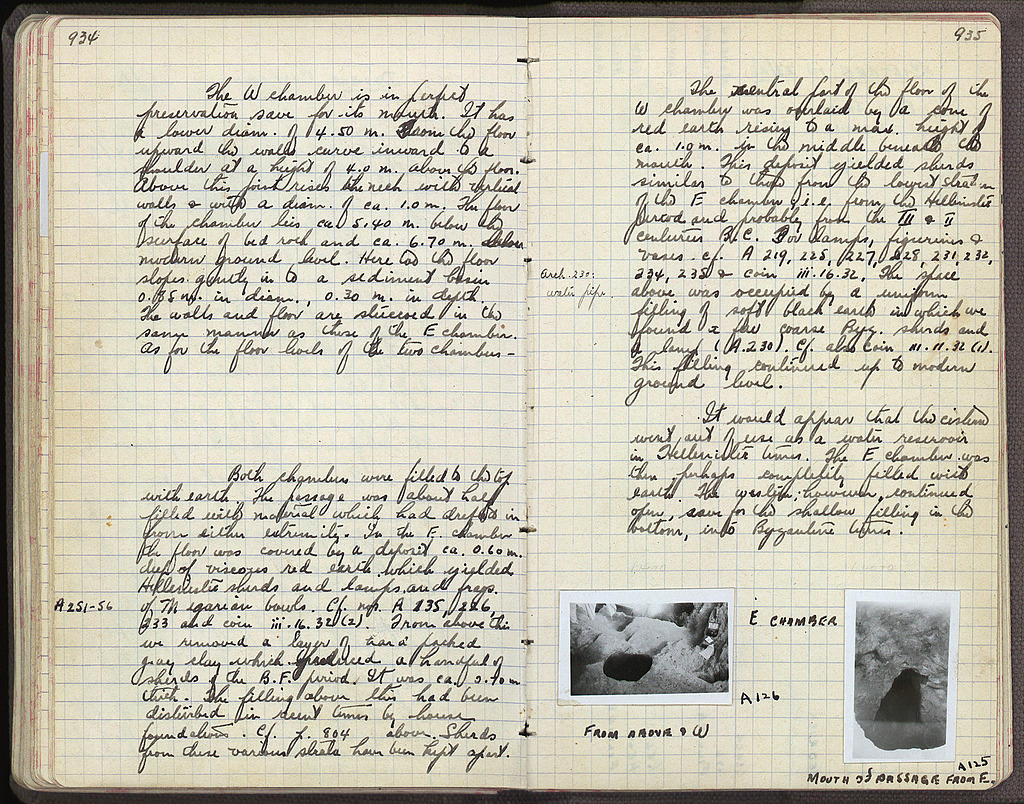 934
The W chamber is in perfect
preservation save for its mouth. It has
a lower diam. of 4.50 m. From the floor
upward the walls curve inward to a
shoulder at a height of 4.0 m. above the floor.
Above this point rises the neck with vertical
walls & with a diam. of ca. 1.0 m. The floor
of the chamber lies ca. 5.40 m. below the
surface of bed rock and ca. 6.70 m. below
modern ground level. Here too the floor
slopes gently in to a sediment basin
0.85 m. in diam., 0.30 m. in depth.
The walls and floor are stuccoed in the
same manner as those of the E chamber.
As for the floor levels of the two chambers –
Both chambers were filled to the top
with earth. The passage was about half
filled with material which had drifted in
from either extremity. In the E. chamber
the floor was covered by a deposit ca. 0.60 m.
deep of viscous red earth which yielded
Hellenistic sherds and lamps and frags.
A 251-56
of Megarian bowls. Cf. nos. A 235, 226,
233 and coin iii.16.32 (2). From above this
we removed a layer of hard packed
gray clay which produced a handful of
sherds of the B.F. period. It was ca. 0.70 m
thick. The filling above this had been
disturbed in recent times by house
foundations. Cf. p. 804 above. Sherds
from these various strata have been kept apart.
935
The central part of the floor of the
W chamber was overlaid by a cone of
red earth rising to a max. height of
ca. 1.0 m. in the middle beneath the
mouth. This deposit yielded sherds
similar to those from the lowest stratum
of the E chamber, i.e. from the Hellenistic
period and probably from the III & II
centuries B.C. For lamps, figurines &
vases cf. A 219, 225, 227, 228, 231, 232,
Arch. 230:
water pipe.
234, 235 & coin iii.16.32. The space
above was occupied by a uniform
filling of soft black earth in which we
found a few coarse Byz. sherds and
a lamp (A.230). Cf. also coin iii.11.32 (1).
This filling continued up to modern
ground level.
It would appear that the cistern
went out of use as a water reservoir
in Hellenistic times. The E chamber was
then perhaps completely filled with
earth. The western, however, continued
open, save for the shallow filling in the
bottom, into Byzantine times.
E CHAMBER
A 126
FROM ABOVE & W
A 125
MOUTH OF PASSAGE FROM E.